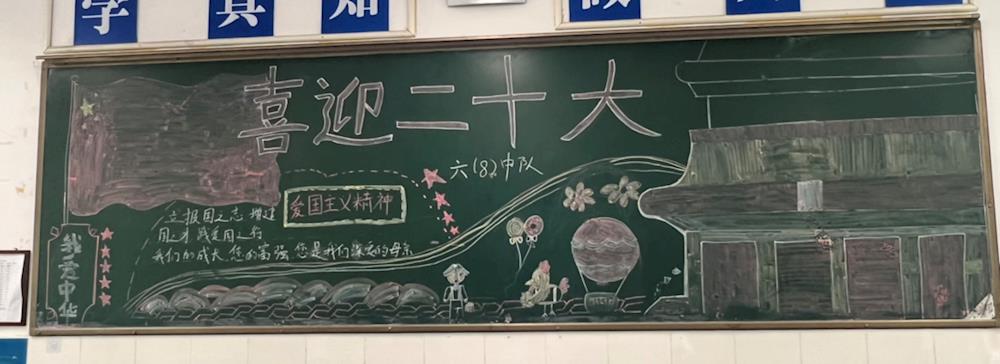 学 真 知
喜迎二十大
六(8)中队
爱国主义精神
立报国之志 增建
国之才 践爱国之行
我们的成长 您的富强 您是我们深爱的母亲
我爱中华